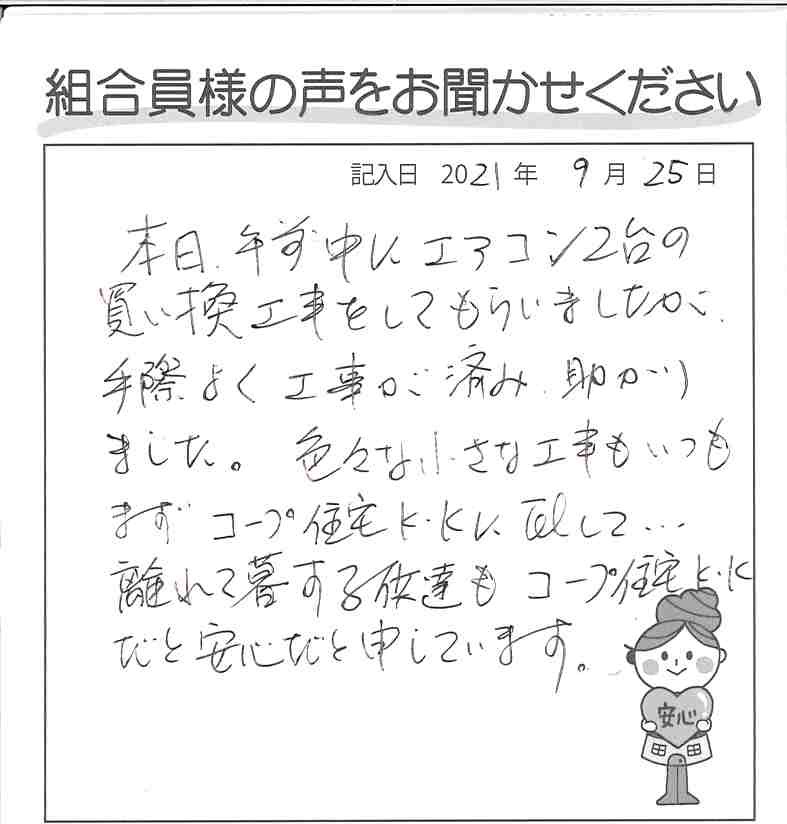 組合員様の声をお聞かせください
記入日 2021年 9月 25日
本日、午前中に エアコン2台の
買い換工事をしてもらいましたが、
手際よく工事が済み、助かり
ました。 色々な小さな工事もいつも
まず コープ住宅K・Kに Telして…
離れて暮する供達も コープ住宅K・K
だと安心だと申しています。
安心